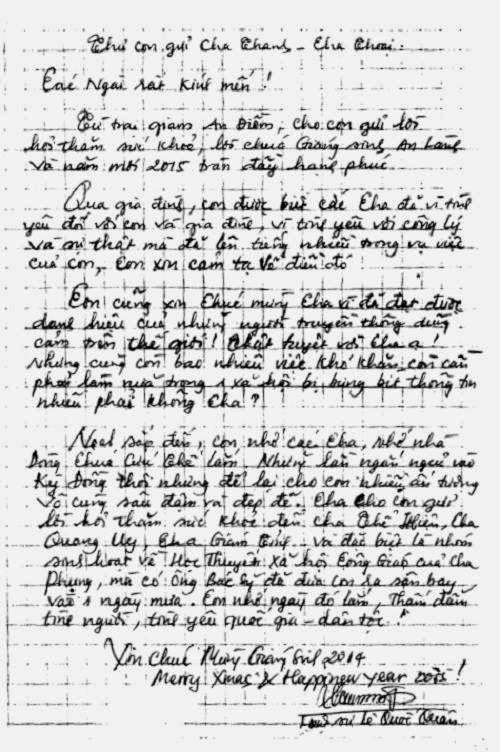 Thư con gửi Cha Thanh - Cha Thoại.
Các Ngài rất kính mến!
Từ trại giam An Điềm, cho con gửi lời
hỏi thăm sức khoẻ, lời chúc Giáng sinh An lành
và năm mới 2015 tràn đầy hạnh phúc
Qua gia đình, con được biết các Cha đã vì tình
yêu đối với con và gia đình, vì tình yêu với công lý
và sự thật mà đã lên tiếng nhiều trong vụ việc
của con, Con xin cảm tạ về điều đó
Con cũng xin Chúc mừng Cha vì đã đạt được
danh hiệu của những người truyền thông dũng
cảm trên thế giới! Thật tuyệt vời Cha ạ!
Nhưng cũng còn bao nhiêu việc khó khăn còn cần
phải làm nữa trong 1 xã hội bị bưng bít thông tin
nhiều phải không Cha?
Noel sắp đến, con nhớ các Cha, nhớ nhà
Dòng Chúa Cứu Thế lắm. Những lần ngắn ngủi vào
Kỳ Đồng thôi nhưng để lại cho con nhiều ấn tượng
vô cùng sâu đậm và đẹp đẽ. Cha cho con gửi
lời hỏi thăm sức khoẻ đến cha Khế Hiền, Cha
Quang Uy, Cha Giám Tỉnh và đặc biệt là nhóm
sinh hoạt về Học Thuyết Xã hội Công Giáo của Cha
Phụng, mà có Ông Bắc kỳ đã đưa con ra sân bay
vào 1 ngày mưa. Con nhớ ngày đó lắm, Thấm đẫm
tình người, tình yêu quốc gia - dân tộc.
Xin Chúc Mừng Giáng Sinh 2014
Merry Xmas & Happy new year 2015!
Luật sư Lê Quốc Quân